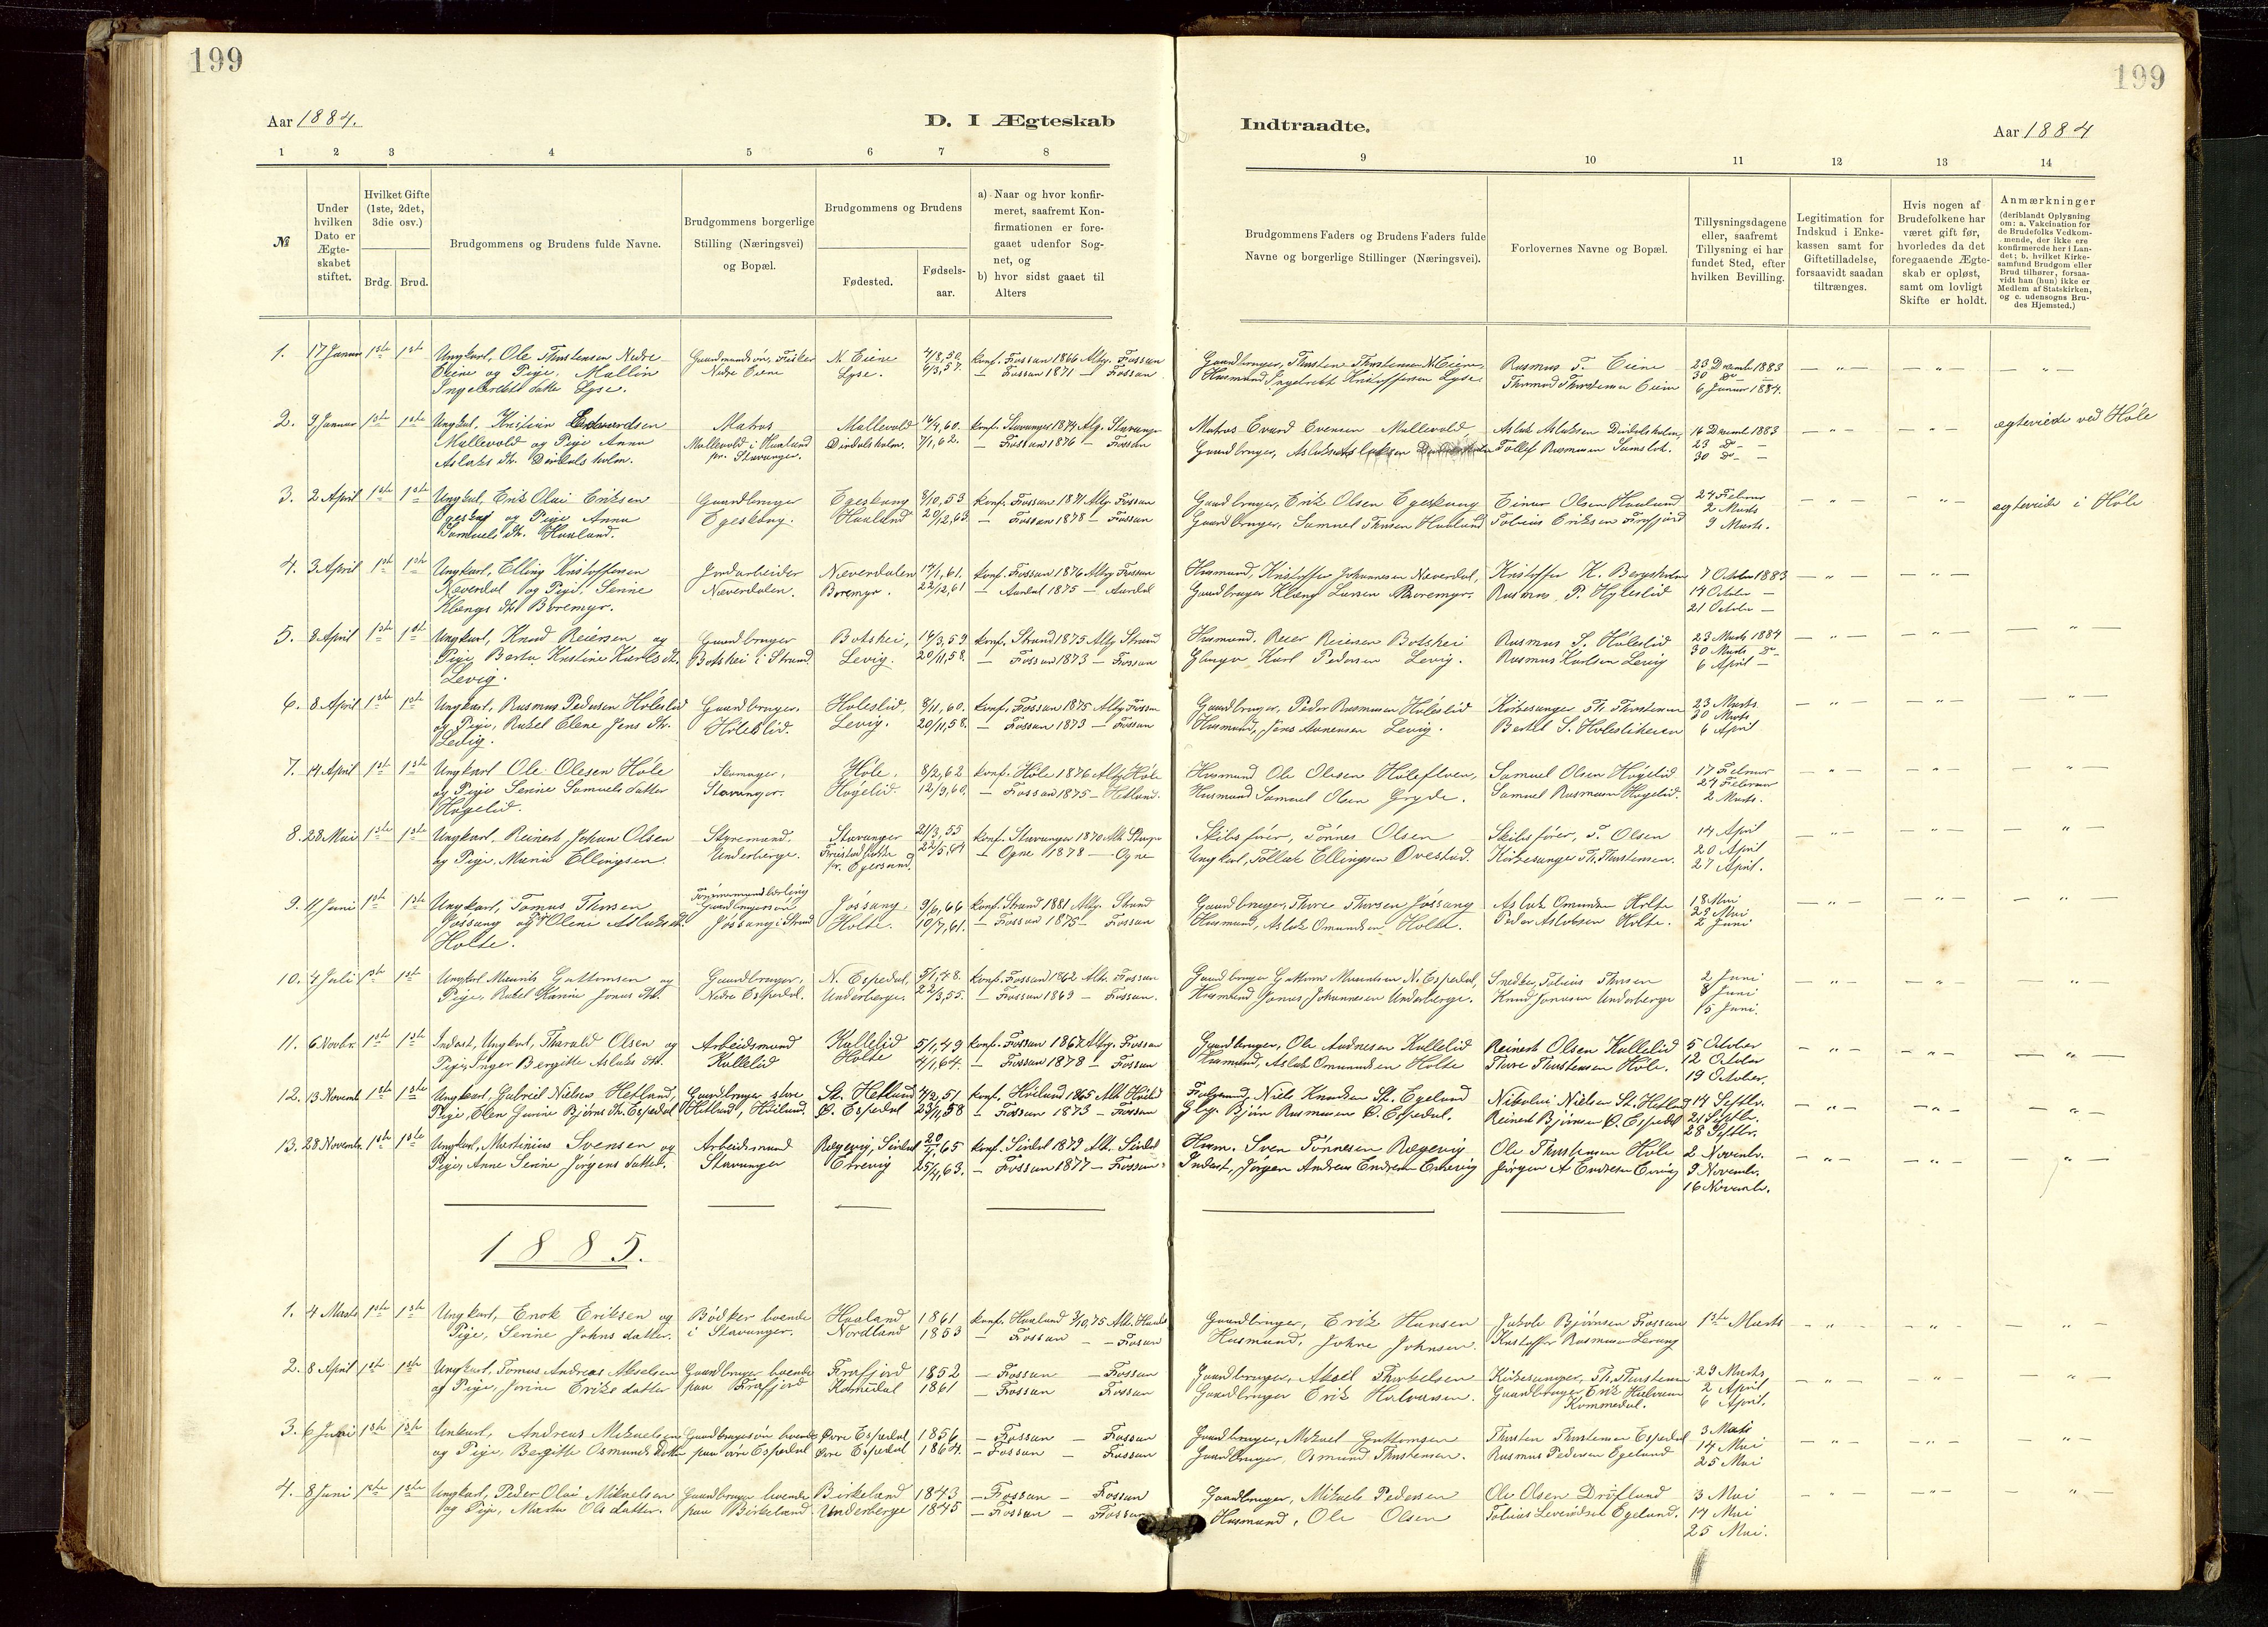 199
199
Aar 1884.
D. I Ægteskab
Indtraadte.
Aar 1884
1 2 3 4 5 6 7 8
9 10 11 12 13 14
№
Under hvilken Dato er Ægte-skabet stiftet.
Hvilket Gifte (1ste, 2det, 3die osv.)
Brdg. Brud.
Brudgommens og Brudens fulde Navne.
Brudgommens borgerlige Stilling (Næringsvei) og Bopæl.
Brudgommens og Brudens
Fødested.
Fødsels-aar.
a) Naar og hvor konfir-meret, saafremt Kon-firmationen er fore-gaaet udenfor Sog-net, og
b) hvor sidst gaaet til Alters
Brudgommens Faders og Brudens Faders fulde Navne og borgerlige Stillinger (Næringsvei).
Forlovernes Navne og Bopæl.
Tillysningsdagene eller, saafremt Tillysning ei har fundet Sted, efter hvilken Bevilling.
Legitimation for Indskud i Enke-kassen samt for Giftetilladelse, forsaavidt saadan tiltrænges.
Hvis nogen af Brudefolkene har været gift før, hvorledes da det foregaaende Ægte-skab er opløst, samt om lovligt Skifte er holdt.
Anmærkninger
(deriblandt Oplysning om: a. Vakcination for de Brudefolks Vedkom-mende, der ikke ere konfirmerede her i Lan-det; b. hvilket Kirke-samfund Brudgom eller Brud tilhører, forsaa-vidt han (hun) ikke er Medlem af Statskirken, og c. udensogns Bru-des Hjemsted.)
1. 17 Januar 1ste 1ste Ungkarl, Ole Thorstensen Nedre Gaardmandssøn, Fisker N. Eiene 4/8,50. Konf. Fossan 1866 Altg. Fossan
Eiene og Pige, Mallin Nedre Eiene Lyse. 6/3,57. — Fossan 1871 — Fossan
Ingebretsdatter Lyse.
Gaardbruger, Thorsten Thorstensen N. Eiene, Rasmus T. Eiene 23 Decembr 1883
Husmand Ingebrett Kristoffersen Lyse. Thormod Thorstensen Eiene 30 Do
6 Januar 1884.
2. 9 Januar 1ste 1ste Ungkarl, Kristian Edvardsen Matros Mallevold 16/4,60. Konf. Stavanger 1874 Altg. Stavanger
Mallevold og Pige Anna Mallevold i Haaland Dirdalsholm. 7/1,62. — Fossan 1876 — Fossan
Aslaks Dt. Dirdalsholm. pr. Stavanger.
Matros Evard Evensen Mallevold Aslak Aslaksen Dirdalsholm, 16 Decembr 1883
Gaardbruger, Aslak Aslaksen Tollef Rasmussen 23 Do —
30 Do — —
ægteviede ved Høle
3. 2 April 1ste 1ste Ungkarl, Erik Olai Eriksen Gaardbruger Egeskaug 8/10,53 Konf. Fossan 1871 Altg. Fossan
Egeskog og Pige Anna Egeskaug. Haaland 20/12,63. — Fossan 1878 — Fossan
Samuels Dt. Haaland.
Gaardbruger, Erik Olsen Egeskaug Einar Olsen Haaland 24 Februar
Gaardbruger, Samuel Thorsen Haaland Tobias Eriksen Frafjord 2 Marts
9 Marts.
ægteviede i Høle
4. 3 April 1ste 1ste Ungkarl, Elling Kristoffersen Jordarbeider Næverdalen 17/1,61. Konf. Fossan 1876 Altg. Fossan
Næverdal og Pige, Serine Næverdalen. Boremyr. 22/12,61 — Aardal 1875 — Aardal
Klengs Dt. Boremyr.
Husmand, Kristoffer Johannesen Næverdal, Kristoffer K. Bergsholm 7 Octobr 1883
Gaardbruger Klæng Larsen Boremyr. Rasmus P. Hyleslid 14 Octobr —
21 Octobr —
5. 8 April 1ste 1ste Ungkarl, Knud Reiersen og Gaardbruger Botshei, 14/3,59 Konf. Strand 1875 Altg Strand
Pige, Berta Kristine Karls Dt. Botshei i Strand. Levig. 20/11,58. — Fossan 1873 — Fossan
Levig.
Husmand. Reier Reiersen Botshei Rasmus S. Høleslid 23 Marts 1884
Karl Pedersen Levig. Rasmus Karlsen Levig 30 Marts Do
6 April —
6. 8 April 1ste 1ste Ungkarl, Rasmus Pedersen Høleslid Gaardbruger. Høleslid, 8/11,60. Konf. Fossan 1875 Altg Fossan
og Pige, Rakel Elene Jens Dt. Høleslid. Levig. 20/11,58. — Fossan 1873 — Fossan
Levig.
Gaardbruger, Peder Rasmussen Høleslid Kirkesanger Th. Thorstensen 23 Marts
Husmand, Jens Levig. Bertel S. Høleslidheien 30 Marts
6 April
7. 14 April 1ste 1ste Ungkarl Ole Olesen Høle Skomager, Høle. 8/2,62 Konf. Høle 1876 Altg Høle
og Pige Serine Samuelsdatter Stavanger. Høgelid. 12/9,60. — Fossan 1875 — Hetland.
Høgelid.
Husmand Ole Olesen Samuel Olsen Høgelid 17 Februar
Husmand Samuel Olsen Gryde. Samuel Rasmussen Høgelid. 24 Februar
2 Marts.
8. 28 Mai 1ste 1ste Ungkarl, Reinert Johan Olsen Styremand. Stavanger 21/3,55 Konf. Stavanger 1870
og Pige, Maria Ellingsen. Underberge. 22/5,64 — Ogne 1878 — Ogne
pr. Egersund.
Skibsfører, Tønnes Olsen Skibsfører, T. Olsen 14 April
Ungkarl, Tollak Ellingsen Ovestad. Kirkesanger Th. Thorstensen. 20 April
27 April.
9. 11 Juni 1ste 1ste Ungkarl, Tomas Thorsen Tømmermandslærling Jøssang. 9/6,66 Konf. Strand 1881 Altg. Strand
Jøssang og Pige Oleni Aslaks Dt. Gaardbrugersøn Holte. 10/7,61. — Fossan 1875 — Fossan
Holte. Jøssang i Strand
Gaardbruger, Thore Thorsen Jøssang Aslak Omundsen Holte 18 Mai
Husmand, Aslak Omundsen Holte. Peder Aslaksen Holte. Mai
2 Juni
10. 4 Juli 1ste 1ste Ungkarl Maurits Guttormsen og Gaardbruger, N. Espedal, 5/1,48. Konf. Fossan 1862 Altr. Fossan
Pige, Rakel Karine Jonas Dt. Nedre Espedal. Underberge. 22/3,55. — Fossan 1869 — Fossan.
Gaardbruger Guttorm Mauritsen N. Espedal, Snedker, Tobias Thorsen 2 Juni
Husmand Jonas Johannesen Underberge. Knud Jonasen Underberge 8 Juni
15 Juni.
11. 6 Novbr. 1ste 1ste Inderst, Ungkarl, Tharald Olsen og Arbeidsmand Kallelid 5/1,49 Konf. Fossan 1864 Altg. Fossan
Pige, Inger Bergitte Aslaks Dt. Kallelid Holte 4/1,64. — Fossan 1878 — Fossan
Gaardbruger, Ole Andresen Kallelid Reinert Olsen Kallelid 5 October
Husmand, Aslak Omundsen Holte Thore Thorstensen Høle. 12 October
19 October.
12. 13 Novemb. 1ste 1ste Ungkarl, Gabriel Nielsen Hetland, Gaardbruger store St. Hetland 4/2,51 Konf. Høiland 1865 Alt. Høiland
Pige, Elen Gurine Bjørns Dt. Espedal Hetland, Høiland. Ø. Espedal 23/11,58 — Fossan 1873 — Fossan
Niels Knudsen St. Egeland Nikolai Nielsen St. Hetland 14 Septbr.
Bjørn Rasmussen Ø. Espedal. Reinert Bjørnsen Ø. Espedal 21 Septbr.
28 Septbr.
13. 28 Novembr. 1ste 1ste Ungkarl, Martinius Svensen og Arbeidsmand Rægevig, Sirdal 20/7,65 Konf. Sirdal 1879 Alt. Sirdal
Pige, Anne Serine Jørgensdatter. Stavanger Eirevig 25/4,63. — Fossan 1877 — Fossan.
Husm. Sven Tønnesen Rægevig Ole Thorstensen Høle 2 Novembr.
Inderst, Jørgen Andreas Endresen Jørgen A Endresen 9 Novembr.
16 Novembr.
1885.
1. 4 Marts 1ste 1ste Ungkarl, Enok Eriksen og Bødker boende Haaland 1861 Konf. Haaland 3/10,75 Alt. Haaland
Pige, Serine Johnsdatter. i Stavanger. Nordland 1853 — Fossan — Fossan
Gaardbruger, Erik Hansen Jakob Bjørnsen Fossan 1ste Marts
Husmand, Johne Johnsen. Kristoffer Rasmussen
2. 8 April 1ste 1ste Ungkarl, Tomas Andreas Akselsen Gaardbruger boende Frafjord 1852 — Fossan — Fossan
og Pige, Jorine Eriksdatter paa Frafjord Kommedal 1861 — Fossan Fossan
Gaardbruger, Aksel Thorkelsen Kirkesanger, Th. Thorstensen 29 Marts
Gaardbruger Erik Halvorsen. Gaardbruger Erik Halvorsen 2 April
Kommedal. 6 April.
3. 6 Juni 1ste 1ste Unkarl, Andreas Mikaelsen Gaardbrugersøn boende Øvre Espedal 1856 — Fossan — Fossan
og Pige, Begitte Osmundsdatter paa øvre Espedal Øvre Espedal 1864. — Fossan — Fossan
Gaardbruger, Mikael Guttormsen Thorsten Thorstensen Espedal 3 Marts
Gaardbruger, Osmund Thorstensen. Rasmus Pedersen Egeland 14 Mai
25 Mai
4. 8 Juni 1ste 1ste Ungkarl, Peder Olai Mikaelsen Gaardbruger boende Birkeland 1843 — Fossan — Fossan
og Pige, Marta Olsdatter. paa Birkeland. Underberge 1845 — Fossan — Fossan
Gaardbruger, Mikael Pedersen Ole Olsen Drøfland 3 Mai
Husmand, Ole Olsen Tobias Egeland. 14 Mai
25 Mai.